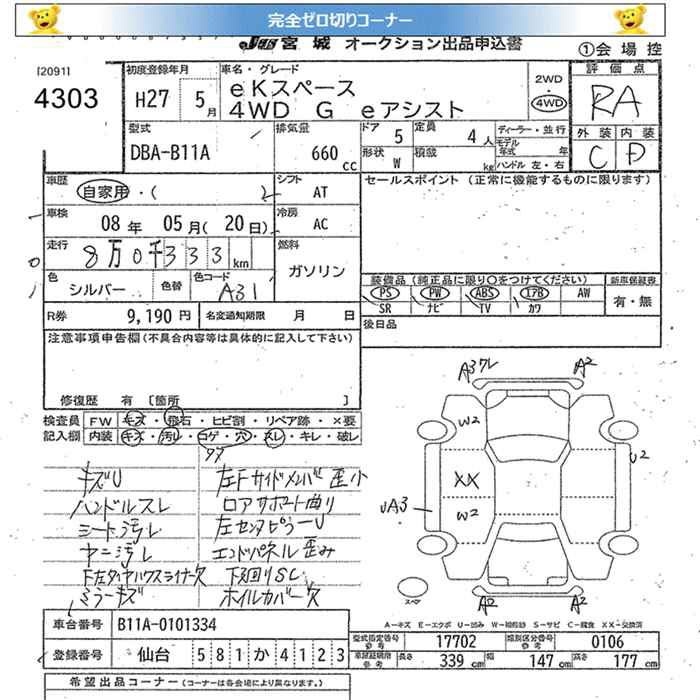 完全ゼロ切りコーナー
JU 宮城 オークション出品申込書
①会場控
[2091]
4303
初度登録年月
H27 5月
車名・グレード
eKスペース
4WD G eアシスト
2WD
・
4WD
評価点
RA
型式
DBA-B11A
排気量
660 cc
ドア 5
定員 4人
形状 W
積載 kg
ディーラー・並行
モデル年式 年
ハンドル 左・右
外装 内装
C D
車歴
自家用・( )
シフト
AT
セールスポイント (正常に機能するものに限ります)
車検
08年 05月(20日)
冷房
AC
走行
8万0千333km
燃料
ガソリン
色
シルバー
色替
色コード
A31
装備品(純正品に限り○をつけてください)
新車保証書
PS PW ABS エアB AW
SR ナビ TV カワ
有・無
R券
9,190円
名変通知期限 月 日
後日品
注意事項申告欄(不具合内容等は具体的に記入して下さい)
修復歴 有 [箇所 ]
検査員 FW キズ・飛石・ヒビ割・リペア跡・×要
記入欄 内装 キズ・汚レ・コゲ・穴・スレ・キレ・破レ
キズU
ハンドルスレ
シート汚レ
ヤニ汚レ
下左タイヤハウスライナー欠
ミラーキズ
左Fサイドメンバ歪小
ロアサポート曲り
左センタピラーU
エンドパネル歪み
下廻りSC
ホイルカバー欠
A3ワレ
A2
W2
U2
XX
UA3
W2
A2
A2
スペア
A-キズ E-エクボ U-凹み W-補修跡 S-サビ C-腐食 XX-交換済
車台番号
B11A-0101334
登録番号
仙台 581か4123
型式指定番号 参考
17702
類別区分番号 参考
0106
車検証明用 参考
長さ 339cm
幅 147cm
高さ 177cm
希望出品コーナー(コーナーは各会場により異なります。)